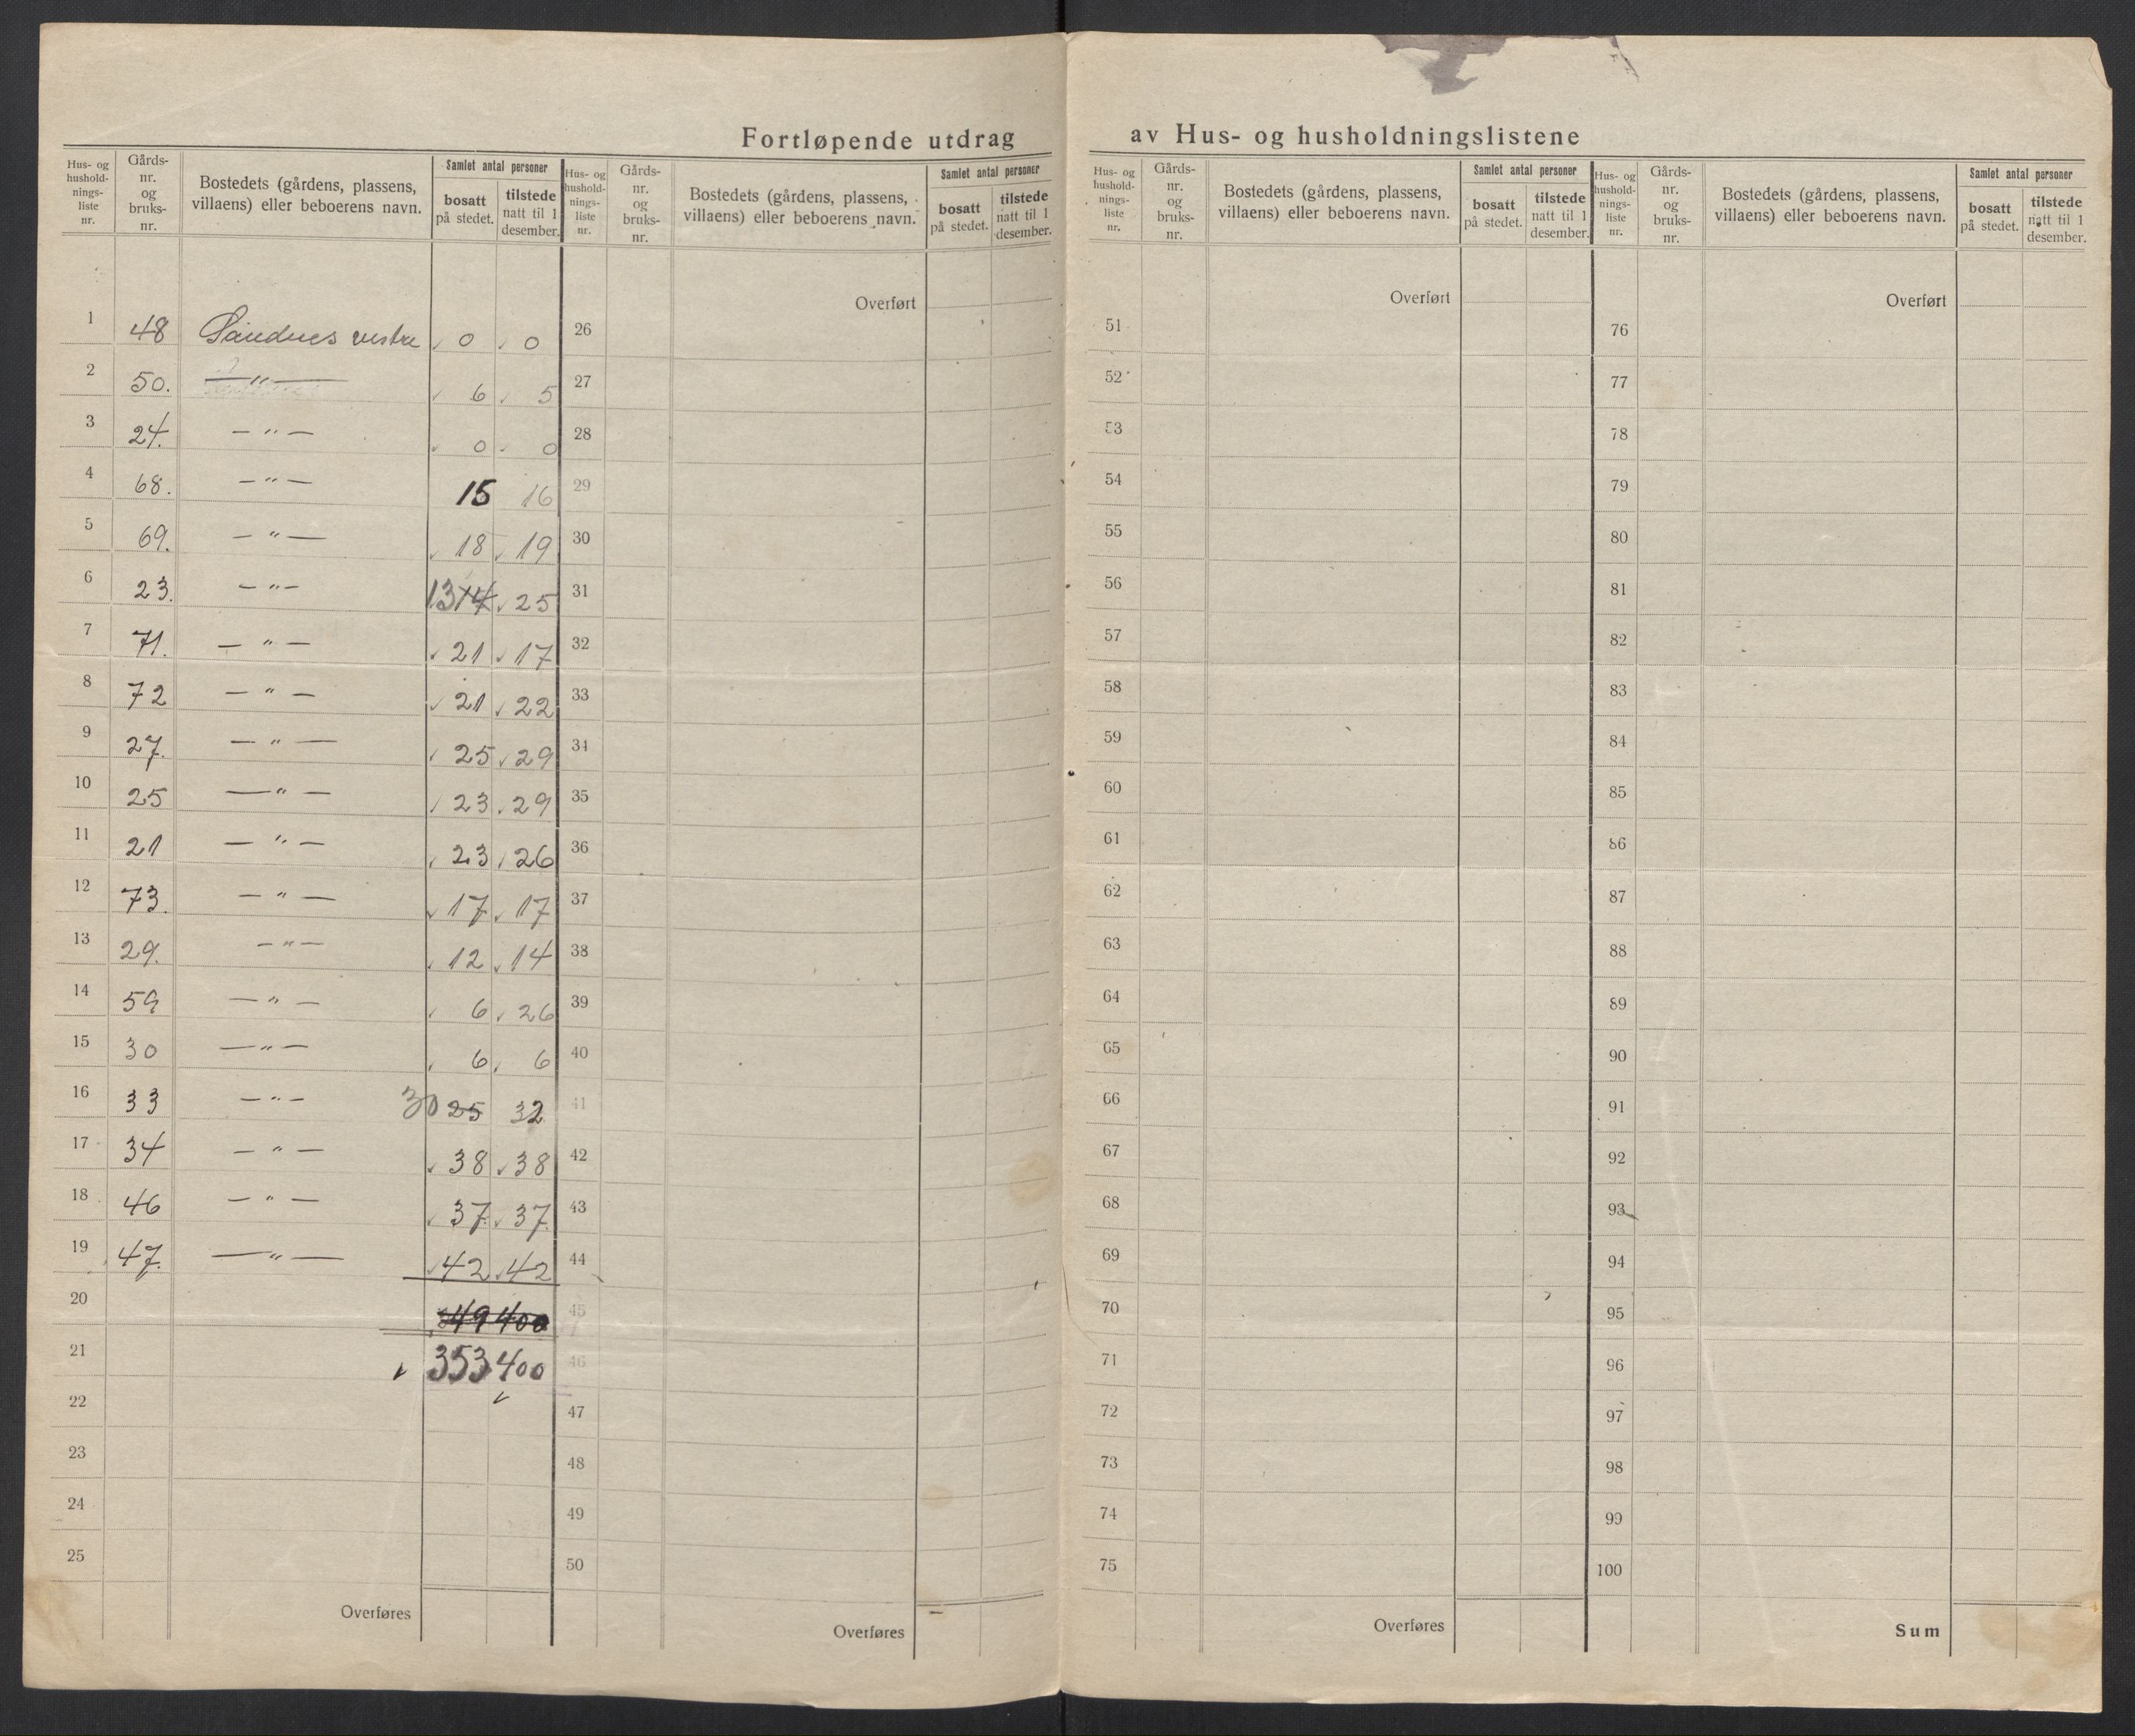 Fortløpende utdrag av Hus- og husholdningslistene
Hus- og husholdnings-liste nr. Gårds-nr. og bruks-nr. Bostedets (gårdens, plassens, villaens) eller beboerens navn. Samlet antal personer bosatt på stedet. tilstede natt til 1 desember.
Hus- og husholdnings-liste nr. Gårds-nr. og bruks-nr. Bostedets (gårdens, plassens, villaens) eller beboerens navn. Samlet antal personer bosatt på stedet. tilstede natt til 1 desember.
Hus- og husholdnings-liste nr. Gårds-nr. og bruks-nr. Bostedets (gårdens, plassens, villaens) eller beboerens navn. Samlet antal personer bosatt på stedet. tilstede natt til 1 desember.
Hus- og husholdnings-liste nr. Gårds-nr. og bruks-nr. Bostedets (gårdens, plassens, villaens) eller beboerens navn. Samlet antal personer bosatt på stedet. tilstede natt til 1 desember.
Overført Overført Overført
1 48 Sandnes vestre 0 0 26 51 76
2 50. —"— 6 5 27 52 77
3 24. —"— 0 0 28 53 78
4 68. —"— 15 16 29 54 79
5 69. —"— 18 19 30 55 80
6 23. —"— 13 14 25 31 56 81
7 71. —"— 21 17 32 57 82
8 72 —"— 21 22 33 58 83
9 27. —"— 25 29 34 59 84
10 25 —"— 23 29 35 60 85
11 21 —"— 23 26 36 61 86
12 73. —"— 17 17 37 62 87
13 29. —"— 12 14 38 63 88
14 59 —"— 6 26 39 64 89
15 30 —"— 6 6 40 65 90
16 33 —"— 30 25 32 41 66 91
17 34 —"— 38 38 42 67 92
18 46 —"— 37 37 43 68 93
19 47. —"— 42 42 44 69 94
20 349 400 45 70 95
21 353 400 46 71 96
22 47 72 97
23 48 73 98
24 49 74 99
25 50 75 100
Overføres Overføres Overføres Sum